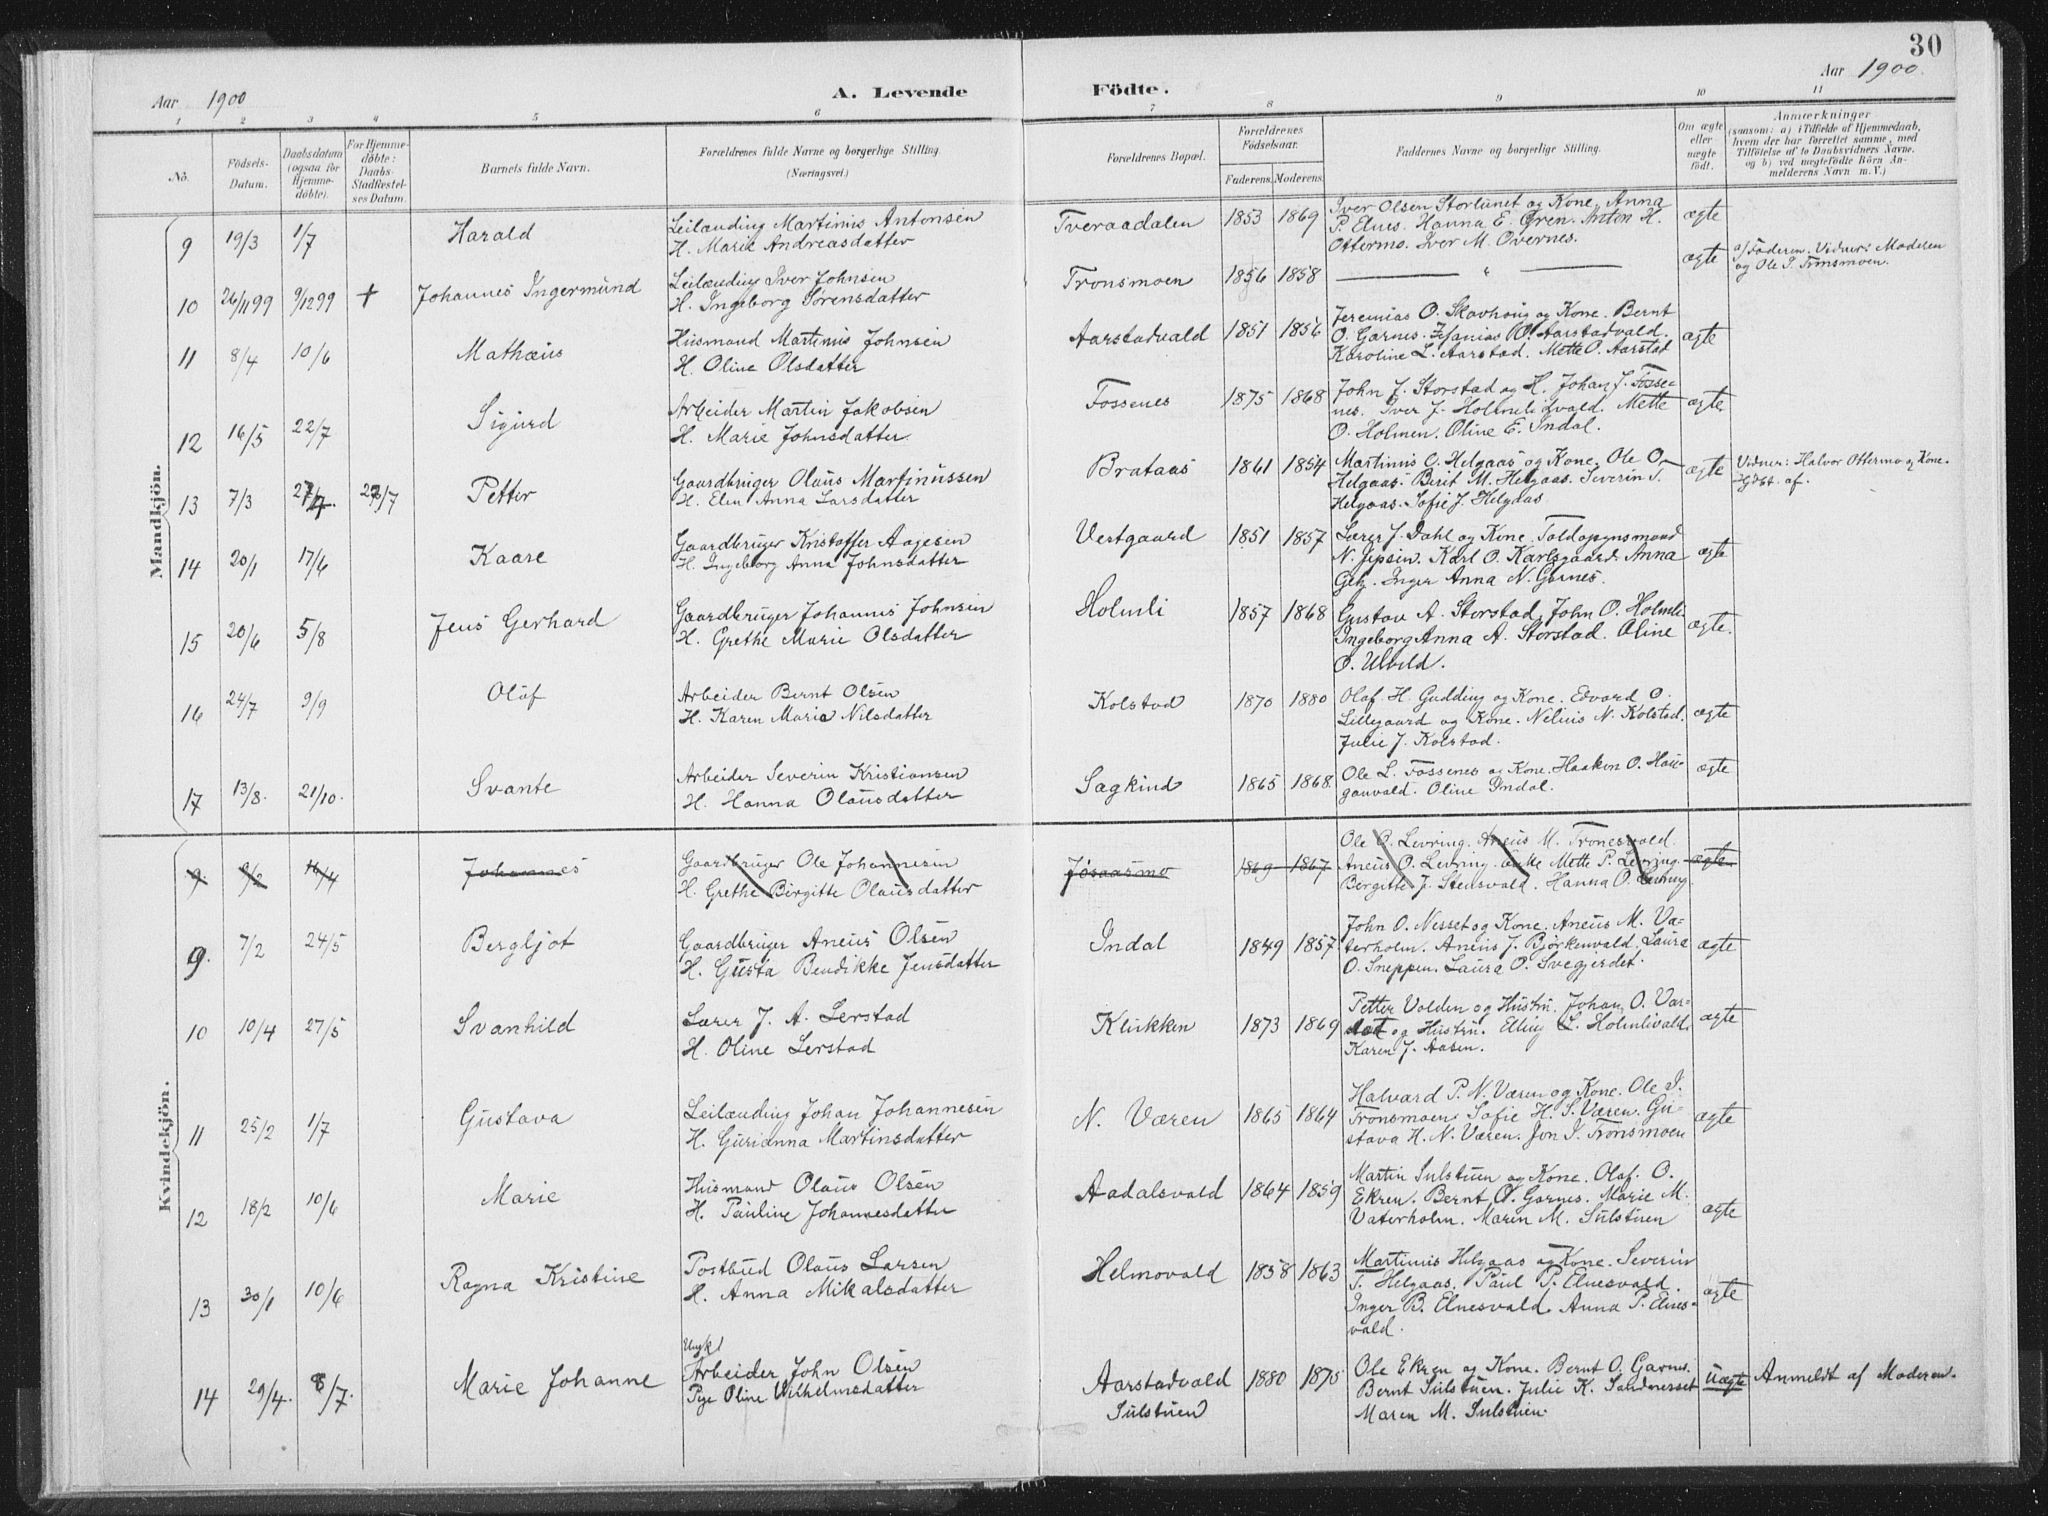 30
Aar 1900
A. Levende
Födte.
Aar 1900.
1 2 3 4 5 6 7 8 9 10 11
No.
Födsels-Datum.
Daabsdatum (ogsaa for Hjemme-döbte).
For Hjemme-döbte: Daabs-Stadfæstel-ses Datum.
Barnets fulde Navn.
Forældrenes fulde Navne og borgerlige Stilling. (Næringsvei.)
Forældrenes Bopæl.
Forældrenes Födselsaar.
Faderens. Moderens.
Faddernes Navne og borgerlige Stilling.
Om ægte eller uægte födt.
Anmærkninger
(saasom: a) i Tilfælde af Hjemmedaab, hvem der har forrettet samme, med Tilföielse af to Daabsvidners Navne, og b) ved uægtefödte Börn An-melderens Navn m. V.)
Mandkjön.
9 19/3 1/7 Harald
Leilænding Martinus Antonsen
H. Marie Andreasdatter
Tveraadalen 1853 1869
Iver Olsen Storlunet og Kone, Anna
P. Elnes. Hanna E. Øren. Anton H.
Ottermo. Iver M. Overnes.
ægte
10 26/11 99 9/12 99 + Johannes Ingermund
Leilænding Iver Johnsen
H. Ingeborg Sørensdatter
Tronsmoen 1856 1858
— " —
ægte
a/ Faderen. Vidner: Moderen
og Ole I. Tronsmoen.
11 8/4 10/6 Mathæus
Husmand Martinus Johnsen
H. Oline Olsdatter
Aarstadvald 1851 1856
Jeremias O. Skavhaug og Kone. Bernt
O. Garnes. Zefanias O. Aarstadvald.
Karoline L. Aarstad. Mette O. Aarstad
ægte
12 16/5 22/7 Sigurd
Arbeider Martin Jakobsen
H. Marie Johnsdatter
Fossenes 1875 1868
John J. Storstad og H. Johan J. Fosse-
nes. Iver J. Holmlidvald. Mette
O. Holmen. Oline E. Indal.
ægte
13 7/3 27/7 Petter
Gaardbruger Olaus Martinussen
H. Elen Anna Larsdatter
Brataas 1861 1854
Martinus O. Helgaas og Kone. Ole O.
Helgaas. Berit M. Helgaas. Severin T.
Helgaas. Sofie J. Helgaas
ægte
Vidner: Halvor Ottermo og Kone.
Hjdbt. af.
14 20/1 17/6 Kaare
Gaardbruger Kristoffer Aagesen
H. Ingeborg Anna Johnsdatter
Vestgaard 1851 1857
Lærer J. Dahl og Kone. Toldopsynsmand
N. Jepsen. Karl O. Karlsgaard. Anna
Getz. Inger Anna N. Garnes.
ægte
15 20/6 5/8 Jens Gerhard
Gaardbruger Johannes Johnsen
H. Grethe Marie Olsdatter
Holmli 1857 1868
Gustav A. Storstad, John O. Holmli.
Ingeborg Anna A. Storstad. Oline
O. Ulvild.
ægte.
16 24/7 9/9 Oluf
Arbeider Bernt Olsen
H. Karen Maria Nilsdatter
Kolstad 1870 1880
Olaf H. Gudding og Kone. Edvard O.
Lillegaard og Kone. Nelius N. Kolstad.
Julie J. Kolstad.
ægte
17 13/8. 21/10. Svante
Arbeider Severin Kristiansen
H. Hanna Olausdatter
Sagkind 1865 1868
Ole L. Fossenes og Kone. Haaken O. Hau-
ganvald. Oline Indal.
ægte
Kvindekjön.
9 9/2 16/4 Johannes
Gaardbruger Ole Johannesen
H. Grethe Birgitte Olausdatter
Jøsaasmo 1869 1867
Ole O. Levring. Aneus M. Tronesvald.
Aneus O. Levring. Enke Mette P. Levring.
Bergitte J. Stensvald. Hanna O. Levring
ægte
9. 7/2 24/5 Bergljot
Gaardbruger Aneus Olsen
H. Gusta Bendikke Jensdatter
Indal 1849 1857
John O. Nesset og Kone. Aneus M. Va-
terholm. Aneus J. Bjørkenvald. Laura
O. Sneppen. Laura O. Svegjerdet.
ægte
10 10/4 27/5 Svanhild
Lærer J. A. Lerstad
H. Oline Lerstad
Klukken 1873 1869
Petter Volden og Hustru. Johan O. Var-
slot og Hustru. Elling L. Holmlivald.
Karen J. Aasen.
ægte
11 25/2 1/7 Gustava
Leilænding Johan Johannesen
H. Gurianna Martinsdatter
N. Væren 1865 1864
Halvard P. N. Væren og Kone. Ole I.
Tronsmoen. Sofie H. S. Væren. Gu-
stava H. N. Væren. Jon I. Tronsmoen
ægte
12 18/2 10/6 Marie
Husmand Olaus Olsen
H. Pauline Johannesdatter
Aadalsvald 1864 1859
Martin Sulstuen og Kone. Olaf O.
Ekren. Bernt O. Garnes. Marie M.
Vaterholm. Maren M. Sulstuen
ægte
13 30/1 10/6 Ragna Kristine
Postbud Olaus Larsen
H. Anna Mikalsdatter
Helmovald 1858 1863
Martinus Helgaas og Kone. Severin
T. Helgaas. Paul P. Elnesvald.
Inger B. Elnesvald. Anna P. Elnes-
vald.
ægte
14 29/4. 8/7. Marie Johanne
Ungk.
Arbeider John Olsen
Pige Oline Wilhelmsdatter
Aarstadvald 1880 1875
Sulstuen
Ole Ekren og Kone. Bernt O. Garnes.
Bernt Sulstuen. Julie K. Sandnesset
Maren M. Sulstuen.
uægte
Anmeldt af Moderen.